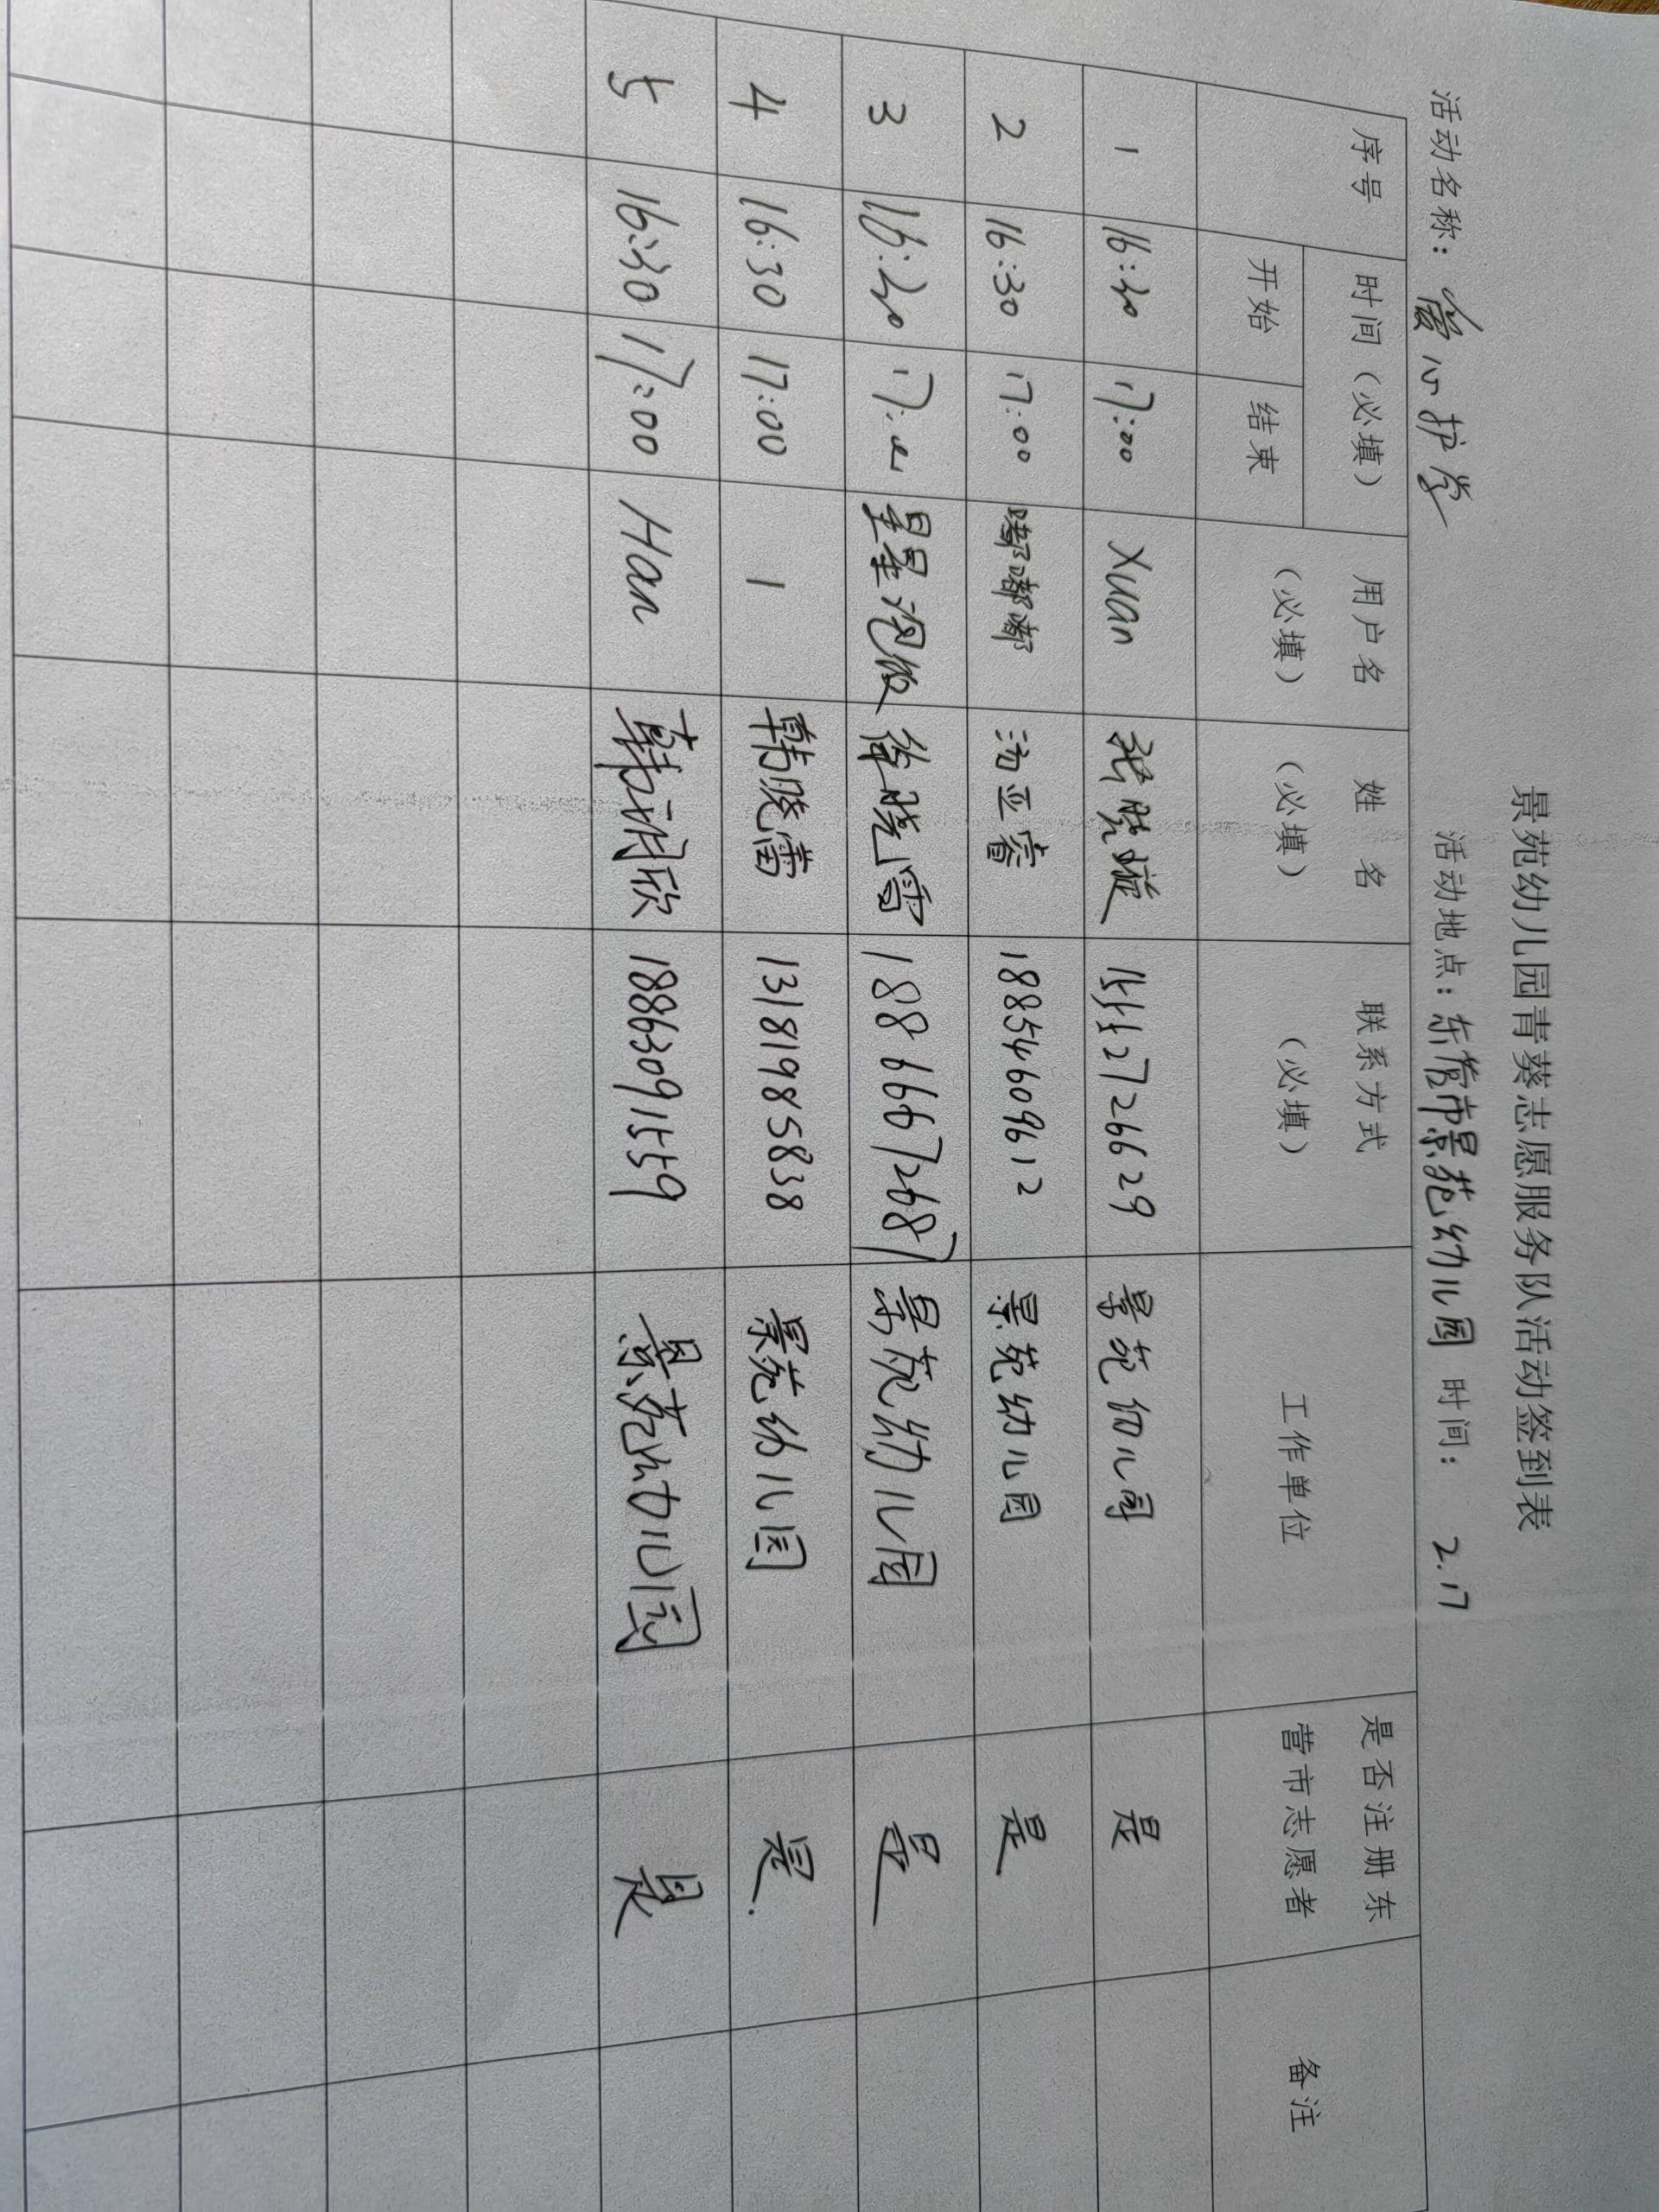 景苑幼儿园青葵志愿服务队活动签到表
活动名称：爱心护学 活动地点：东营市景苑幼儿园 时间：2.17
序号 时间（必填） 用户名（必填） 姓名（必填） 联系方式（必填） 工作单位 是否注册东营市志愿者 备注
开始 结束
1 16:30 17:00 Xuan 张 璇 15552726629 景苑幼儿园 是
2 16:30 17:00 嘟嘟嘟 汤亚睿 18854609612 景苑幼儿园 是
3 16:30 17:00 星星泡饭 徐晓雪 18866672687 景苑幼儿园 是
4 16:30 17:00 1 韩晓雷 13181985838 景苑幼儿园 是.
5 16:30 17:00 Han 韩 欣 18863091559 景苑幼儿园 是